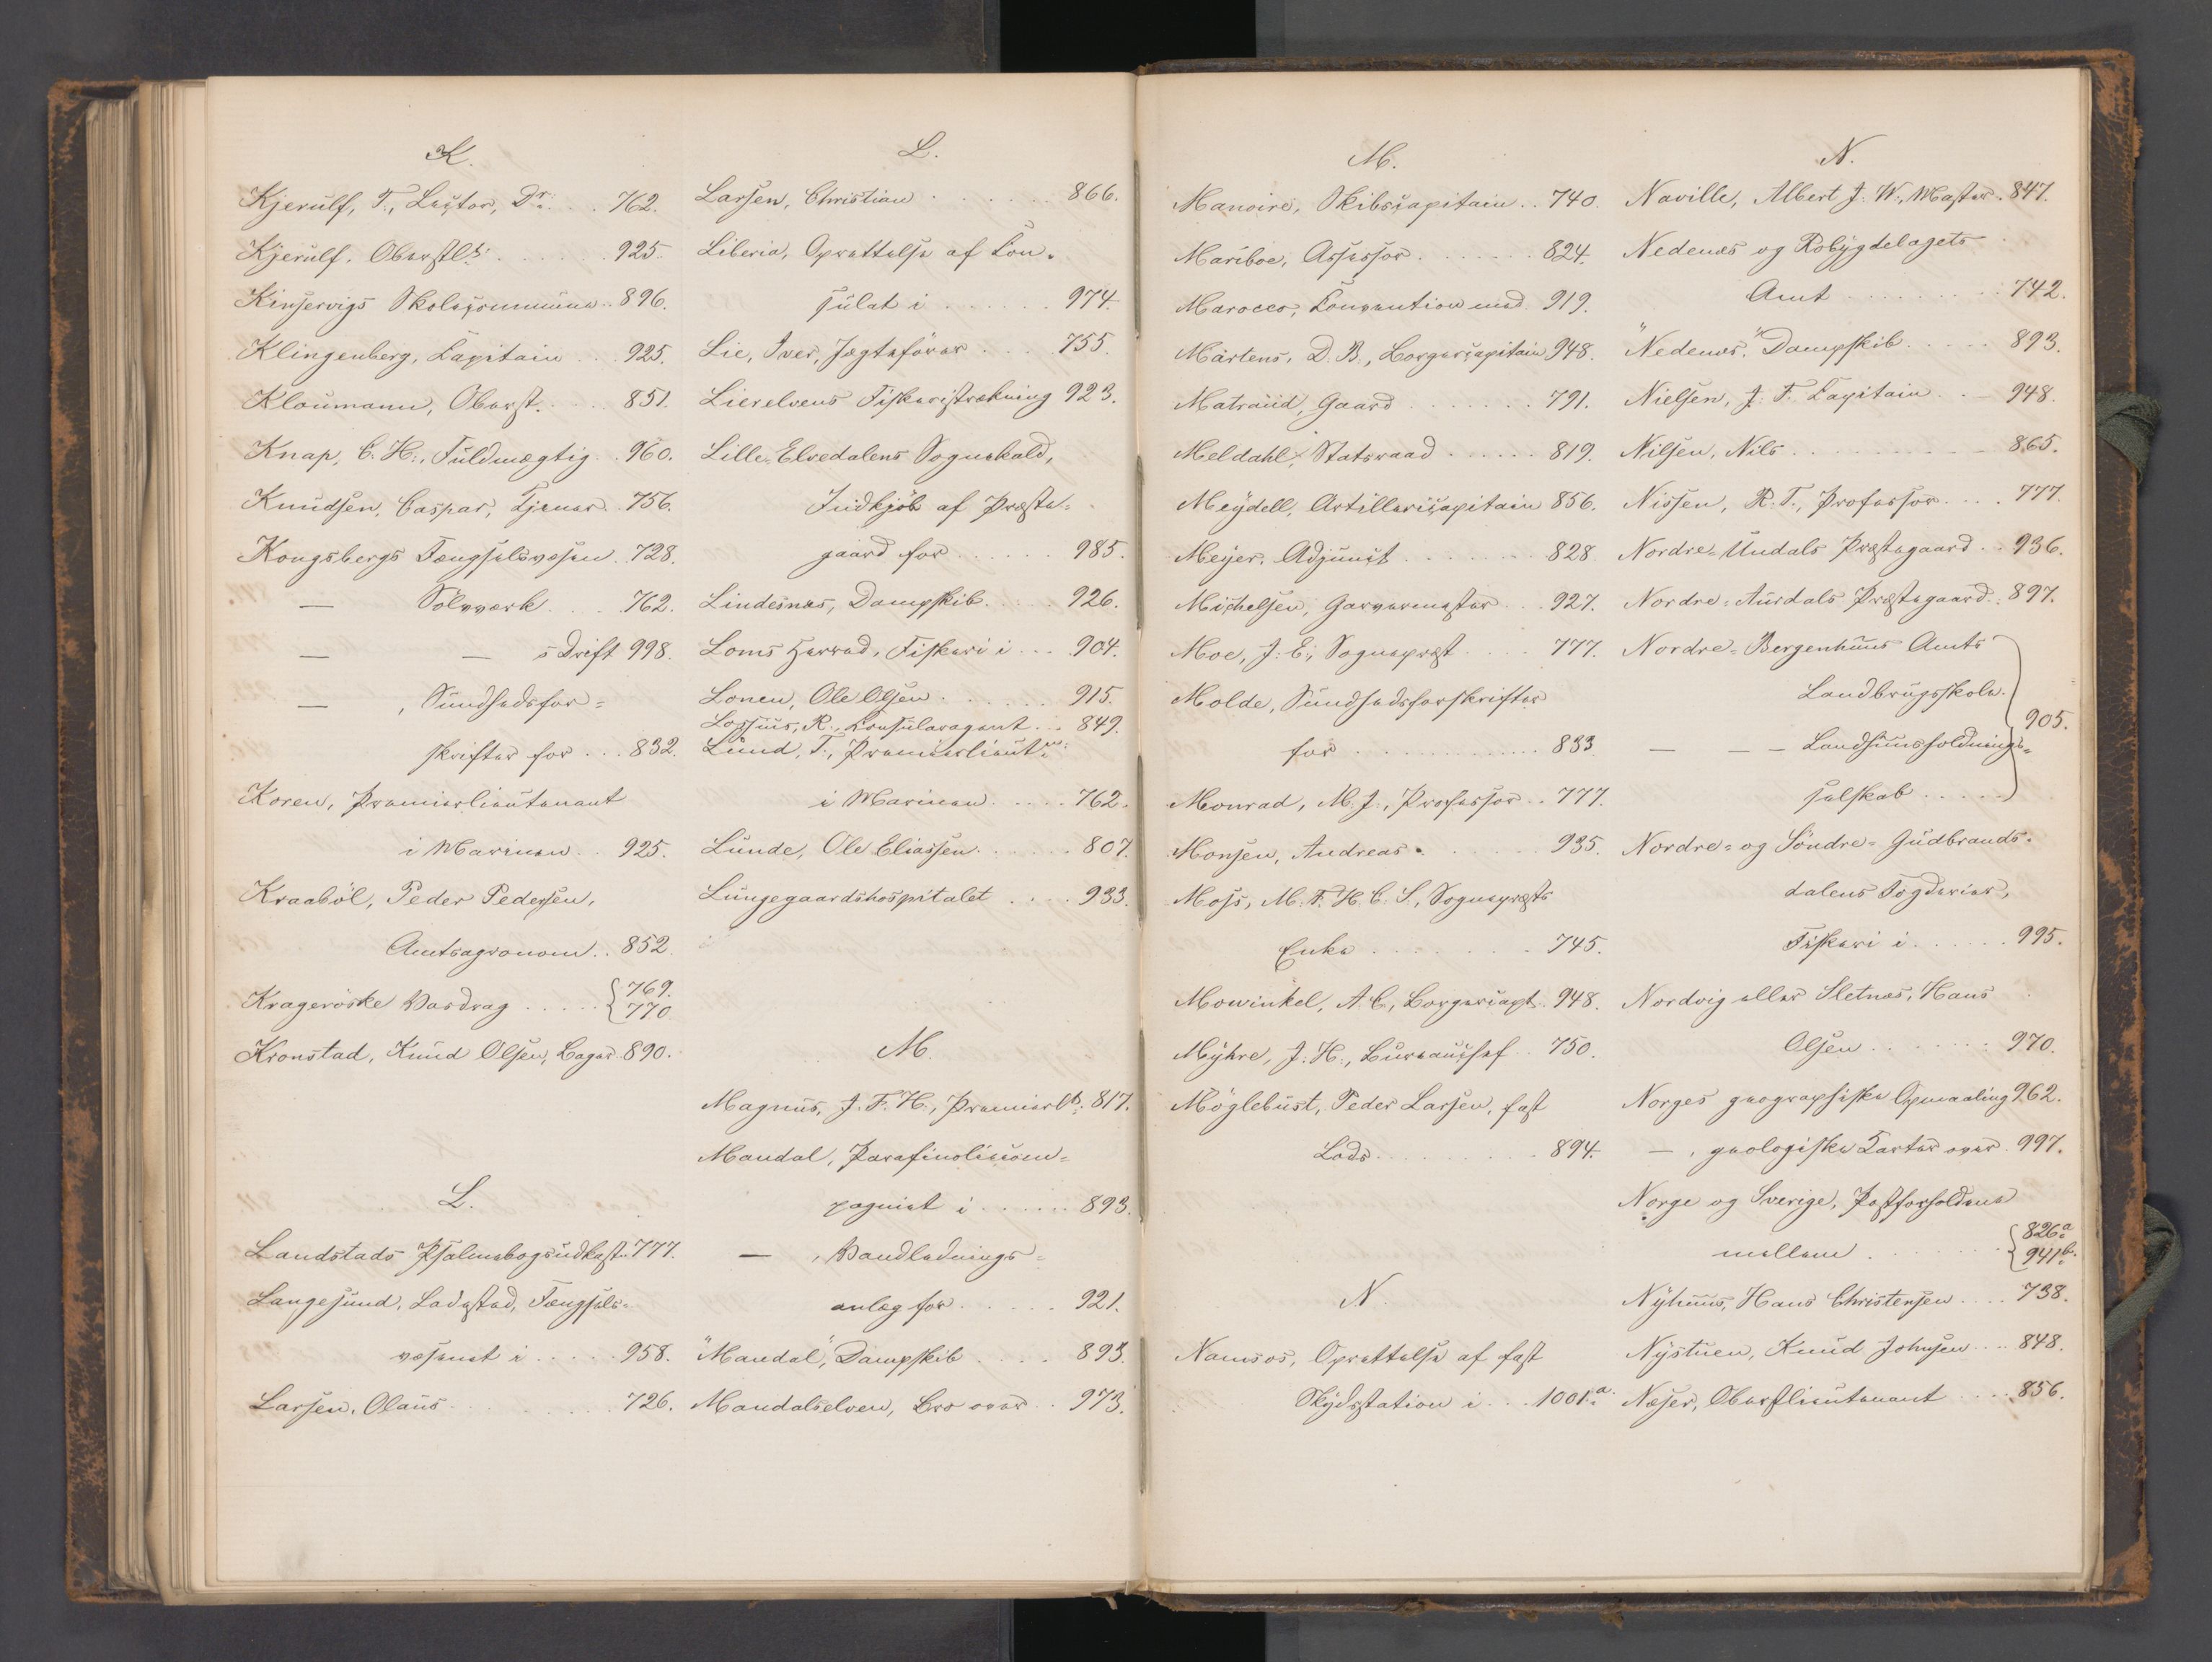 K.
Kjerulf, T., Lector, Dr. . . 762.
Kjerulf, Oberstlt. . . . . . 925.
Kinservigs Skolecommune . . 896.
Klingenberg, Capitain . . 925.
Kloumann, Oberst. . . . 851.
Knap, C. H., Fuldmægtig . . 960.
Knudsen, Caspar, Tjener . 756.
Kongsbergs Fængselsvæsen . 728.
— Sölvværk . . . 762.
— — s Drift 998.
— , Sundhedsfor=
skrifter for . . . 832.
Koren, Premierlieutenant
i Marinen . . 925.
Kraaböl, Peder Pedersen,
Amtsagronom . . 852.
Krageröske Vasdrag . . . . . { 769.
770
Kronstad, Knud Olsen, Bager . 890.
L.
Landstads Psalmebogsudkast . 777.
Langesund, Ladested, Fængsels=
væsenet i . . . . . 958.
Larsen, Olaus . . . . . . 726.
L.
Larsen, Christian . . . . . . . 866.
Liberia, Oprettelse af Con=
sulat i . . . . . . 974.
Lie, Iver, Jægtefører . . . . 755.
Lierelvens Fiskeristrækning 923.
Lille Elvedalens Sognekald,
Indkjöb af Præste=
gaard for . . . . . . 985.
Lindesnæs, Dampskib. . . . . 926.
Loms Herred, Fiskeri i . . . 904.
Lonen, Ole Olsen . . . . . . 915.
Lossius, R., Consularagent . . . 849.
Lund, T., Premierlieut.
i Marinen . . . . . 762.
Lunde, Ole Eliassen . . . . . . 807.
Lungegaardshospitalet . . . . 933.
M.
Magnus, J. F. H., Premierlt. . 817.
Mandal, Parafinoliecom=
pagniet i . . . . . . 893.
— , Vandlednings=
anlæg for . . . . . . 921.
"Mandal", Dampskib . . . . 893.
Mandalselven, Bro over . . 973.
M.
Manoire, Skibscapitain . . 740.
Mariboe, Assessor . . . . . . . 824.
Marocco, Convention med . 919.
Martens, D. B., Borgercapitain 948.
Matrand, Gaard . . . . . . . 791.
Meldahl, Statsraad . . . . . . 819.
Meydell, Artillericapitain 856.
Meyer, Adjunct . . . . . . . 828.
Michelsen, Garvermester . . . 927.
Moe, J. E., Sognepræst . . . . 777.
Molde, Sundhedsforskrifter
for . . . . . . . . . . 833
Monrad, M. J., Professor . . 777.
Monsen, Andreas . . . . . . . 935.
Moss, M. F. H. C. S., Sognepræsts
Enke . . . . . . . . 745.
Mowinkel, A. C., Borgercapt. . 948.
Myhre, J. H., Bureauchef . . 750.
Möglebust, Peder Larsen, fast
Lods . . . . . . . . . 894.
N.
Namsos, Oprettelse af fast
Skydsstation i . . . 1001.a.
N.
Naville, Albert J. W., Master . 847.
Nedenæs og Robygdelagets
Amt . . . . . . . . . 742.
"Nedenæs." Dampskib . . . . . 893.
Nielsen, J. F. Capitain . . . 948.
Nilsen, Nils . . . . . . . . . . 865.
Nissen, R. T., Professor . . . . 777.
Nordre=Undals Præstegaard . . 936.
Nordre=Aurdals Præstegaard . . 897.
Nordre=Bergenhuus Amts
Landbrugsskole.
905.
— — — Landhuusholdnings=
selskab . . . . .
Nordre= og Söndre=Gudbrands=
dalens Fogderier,
Fiskeri i . . . . . . 995.
Nordvig eller Sletnæs, Hans
Olsen . . . . . . . 970.
Norges geographiske Opmaaling 962.
— , geologiske Karter over . 997.
Norge og Sverige, Postforholdene
mellem . . . . . . . { 826a.
941b.
Nyhuus, Hans Christensen . . . . 738.
Nystuen, Knud Johnsen . . . 848.
Næser, Oberstlieutenant . . . . 856.